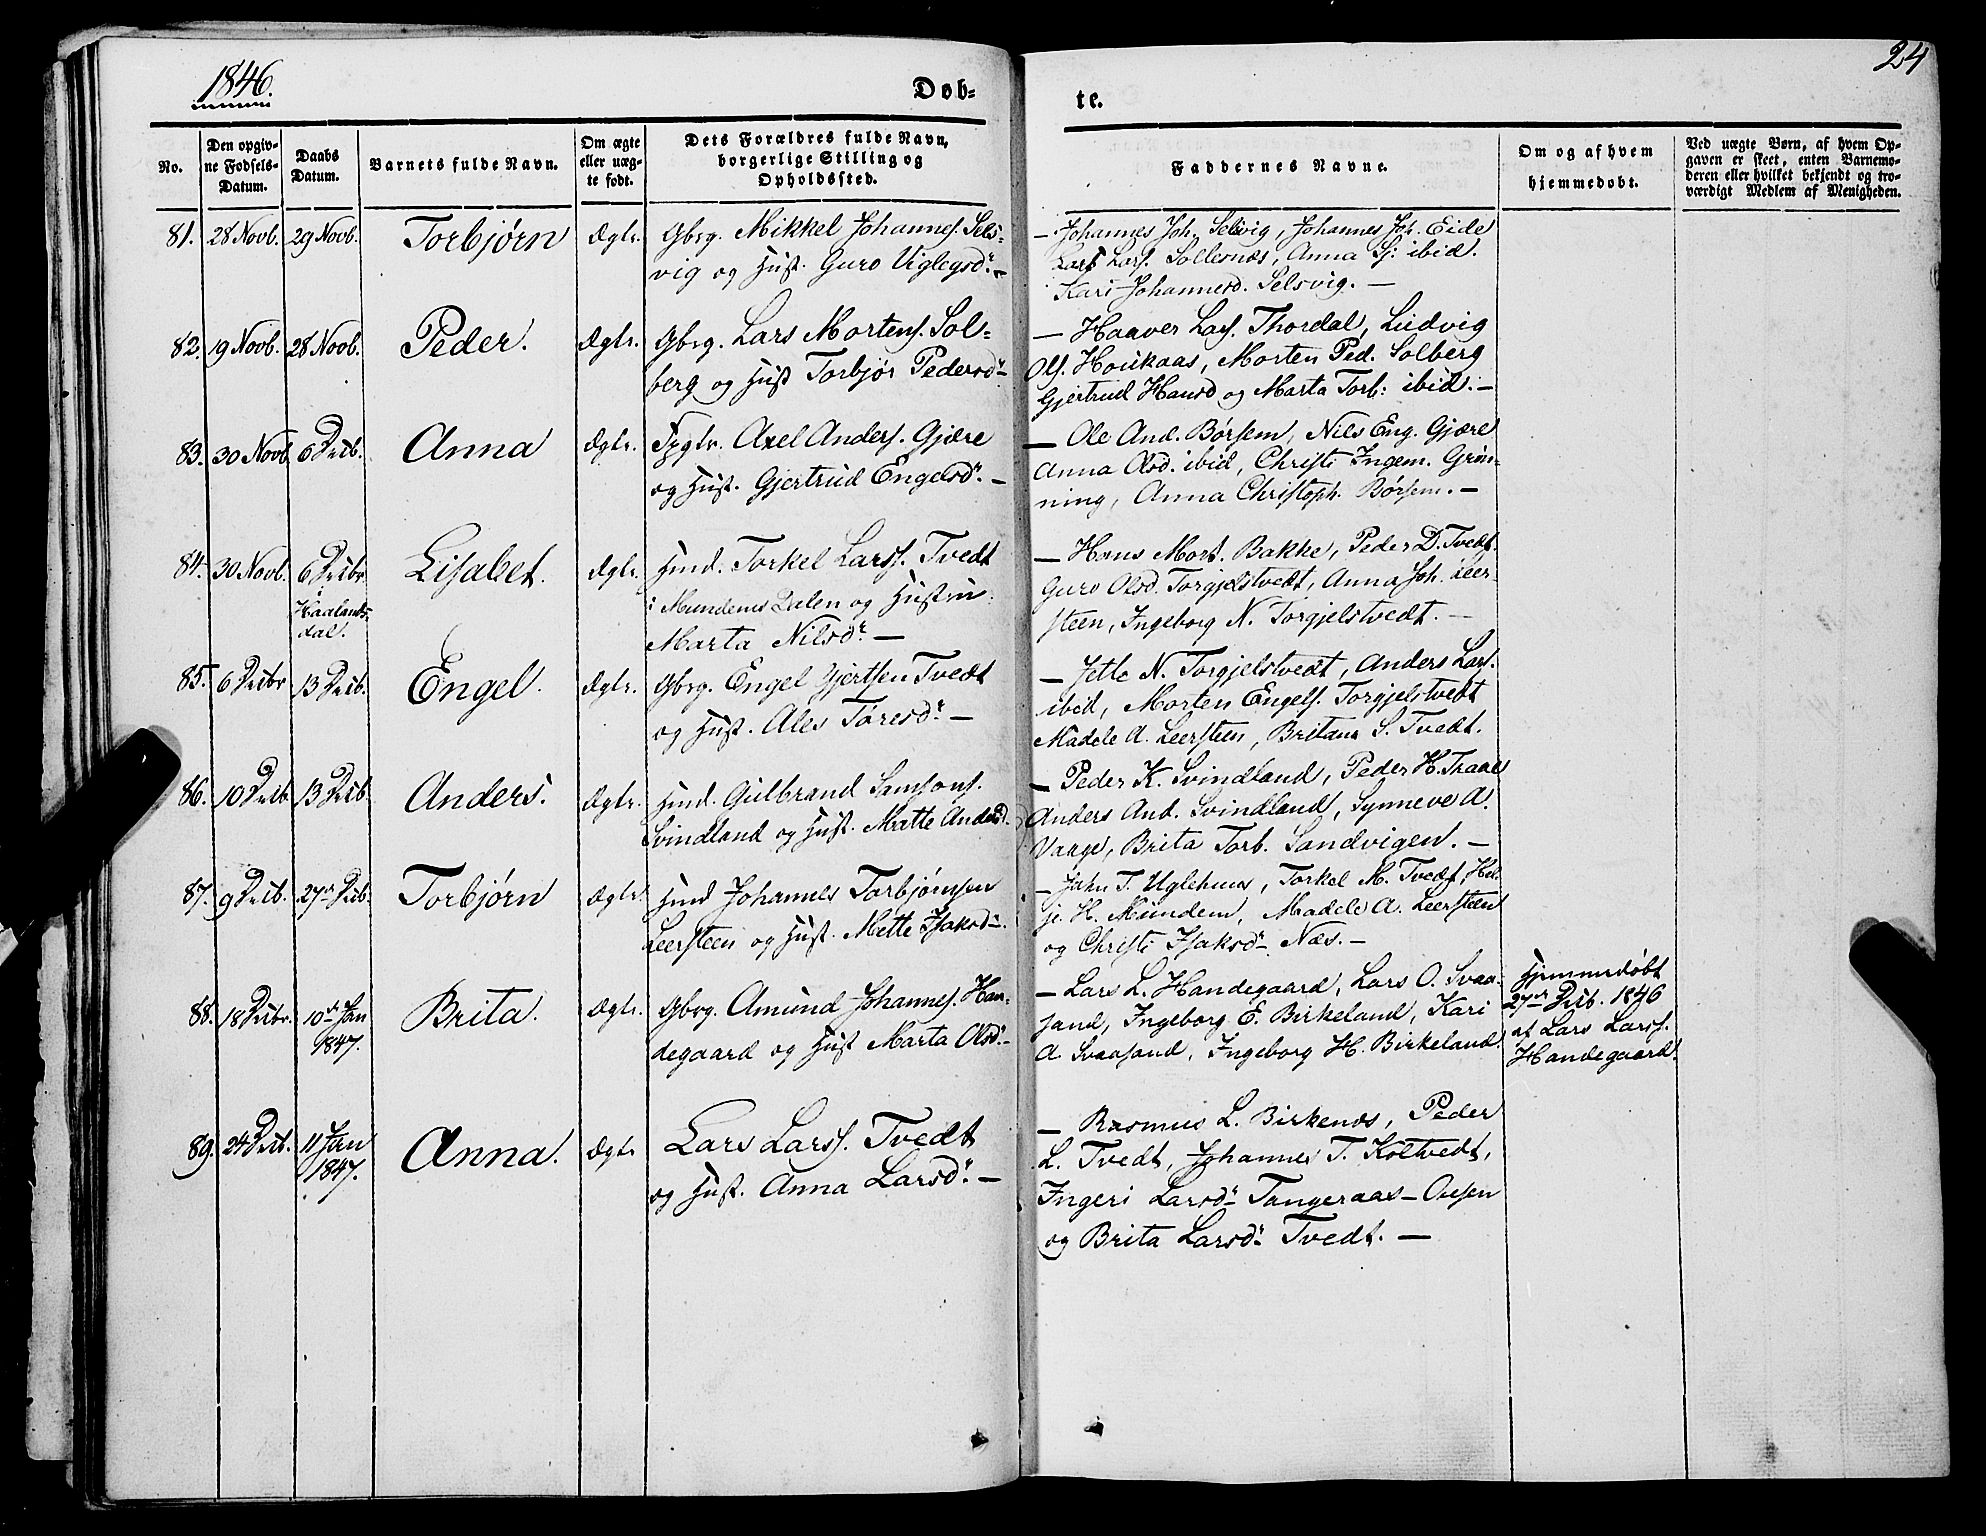 1846.
Døb-
te.
24
No.
Den opgiv-
ne Fødsels-
Datum.
Daabs
Datum.
Barnets fulde Navn.
Om ægte
eller uæg-
te født.
Dets Forældres fulde Navn,
borgerlige Stilling og
Opholdssted.
Faddernes Navne.
Om og af hvem
hjemmedøbt.
Ved uægte Børn, af hvem Op-
gaven er skeet, enten Barnemo-
deren eller hvilket bekjendt og tro-
værdigt Medlem af Menigheden.
81. 28 Novb. 29 Novb. Torbjørn Ægte. Gbrg. Mikkel Johannes. Sels-
vig og Hust. Guro Viglegsdr. –
– Johannes Joh. Selsvig, Johannes Joh. Eide
Lars Lars. Sollesnæs, Anna S: ibid.
Kari Johannesd. Selsvig. –
82. 19 Novb. 28 Novb. Peder. Ægte. Gbrg. Lars Mortens. Sol-
berg og Hust Torbjør Pedersdr –
– Haaver Lars. Thordal, Ludvig
Ols. Houkaas, Morten Ped. Solberg
Gjertrud Hansd og Marta Torb: ibid. –
83. 30 Novb 6 Desb. Anna Ægte. Axel Anders. Gjære
og Hust. Gjertrud Engelsdr. –
– Ole And. Børsem, Nils Eng. Gjære
Anna Olsd. ibid, Christi Ingem. Grøn-
ning, Anna Christoph. Børsem. –
84. 30 Novb. 6 Desbr Lisabet. Ægte. Hmd. Torkel Larss. Tvedt
i
Haalands-
dal.
i Mundems Dalen og Hustru
Marta Nilsdr. –
– Hans Mort. Bakke, Peder D. Tvedt.
Guro Olsd. Torgjelstvedt, Anna Joh. Leer-
steen, Ingeborg N. Torgjelstvedt. –
85. 6 Desbr 13 Desb. Engel. Ægte. Gbrg. Engel Gjertsen Tvedt
og Hust. Ales Toresdr. –
– Jette N. Torgjelstvedt, Anders Lars.
ibid, Morten Engels. Torgjelstvedt
Madele A. Leersteen, Britana S. Tvedt.
86. 10 Desb 13 Desb. Anders. Ægte. Hmd. Gulbrand Samsons.
Svindland og Hust. Mætte Andersd.
– Peder K. Svindland, Peder H. Traae
Anders And. Svindland, Synneve A.
Vaage, Brita Torb. Sandvigen. –
87. 9 Desb. 27de Desb. Torbjørn Ægte. Hmd Johannes Torbjørnsen
Leersteen og Hust. Mette Isaksdr.
– John T. Uglehuus, Torkel M. Tvedt, Hel-
je H. Mundem, Madele A. Leersteen
og Christi Isaksdr Næs. –
88. 18 Desbr. 10de Jan
1847.
Brita. Ægte. Gbrg. Amund Johannes. Han-
degaard og Hust Marta Olsdr. –
– Lars L. Handegaard, Lars O. Svaa-
sand, Ingeborg E. Birkeland, Kari
A Svaasand, Ingeborg H. Birkeland.
Hjemmedøbt
27de Desb. 1846
af Lars Larss.
Handegaard.
89. 24 Desb. 11 Jan
1847.
Anna. Ægte Lars Larss. Tvedt
og Hust. Anna Larsdr. –
– Rasmus L. Birkenæs, Peder
L. Tvedt, Johannes T. Koltvedt,
Ingeri Larsdr Tangeraas –
og Brita Larsdr Tvedt. –